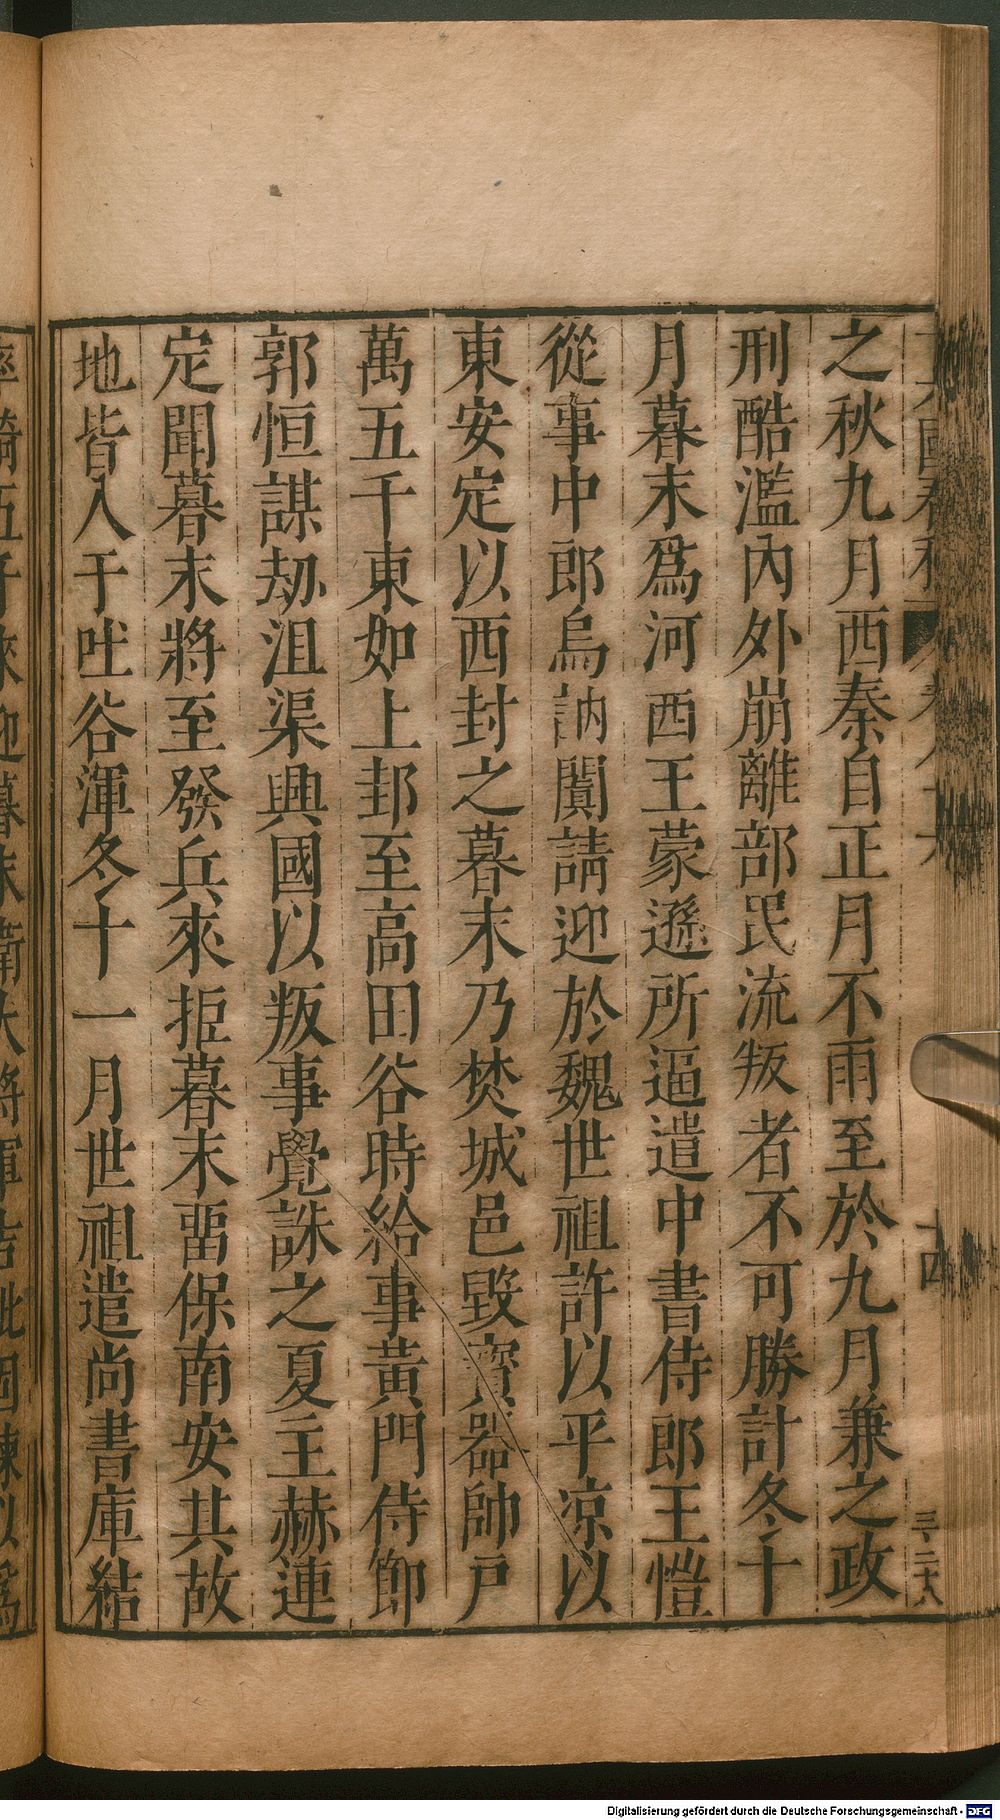 之秋九月西秦自正月不雨至於九月兼之政
刑酷濫內外崩離部民流叛者不可勝計冬十
月暮末爲河西王蒙遜所逼遣中書侍郎王愷
從事中郎烏訥闐請迎於魏世祖許以平凉以
東安定以西封之暮末乃焚城邑毀寶器帥戸
萬五千東如上邽至高田谷時給事黃門侍郎
郭恒謀劫沮渠興國以叛事覺誅之夏主赫連
定聞暮末將至發兵來拒暮末畱保南安其故
地皆入于吐谷渾冬十一月世祖遣尚書庫結
十四
三千二十八
Digitalisierung gefördert durch die Deutsche Forschungsgemeinschaft - DFG